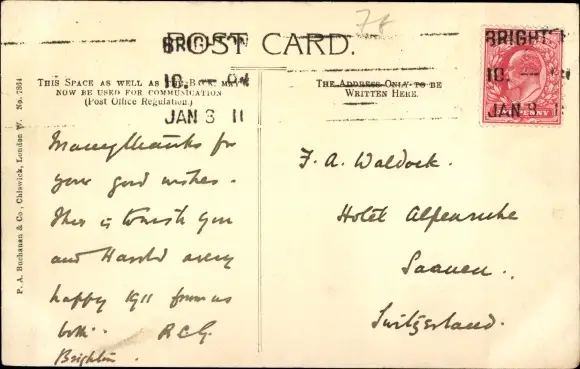 POST CARD.
78
BRIGHTON
10 - AM
JAN 3 11
BRIGHTON
10 -
JAN 3 11
PENNY
THIS SPACE AS WELL AS THE BACK MAY
NOW BE USED FOR COMMUNICATION
(Post Office Regulation.)
THE ADDRESS ONLY TO BE
WRITTEN HERE.
P. A. Buchanan & Co., Chiswick, London W. No. 2864
Many thanks for
your good wishes.
This is to wish you
and Harold a very
happy 1911 from us
both. R C G.
Brighton.
F. A. Waldock.
Hotel Alpenruhe
Saanen.
Switzerland.